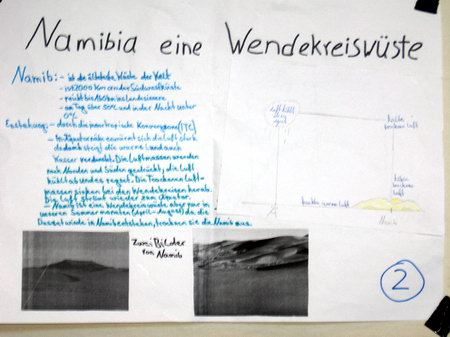 Namibia eine Wendekreiswüste
Namib: - ist die älteste Wüste der Welt
- ist 2000 km an der Südwestküste
- reicht bis 150 km ins Landesinnere
- am Tag über 50°C und in der Nacht unter
0°C
Entstehung: - durch die innertropische Konvergenz (ITC)
- Im Äquatornähe erwärmt sich die Luft stark,
dadurch steigt die warme Land auch
Wasser verdunstet. Die Luftmassen werden
nach Norden und Süden gedrückt, die Luft
kühlt ab und es regnet. Die Trockenen Luft-
massen sinken bei den Wendekreisen herab.
Die Luft strömt wieder zum Äquator.
- Namib ist eine Wendekreiswüste aber nur in
unseren Sommermonaten (April-August) da die
Passatwinde in Namib entstehen, trocknen sie die Namib aus.
Luft kühlt
kalte
trockene Luft
trockene
Luft
feuchte warme Luft
Namib
Zwei Bilder
von Namib
2